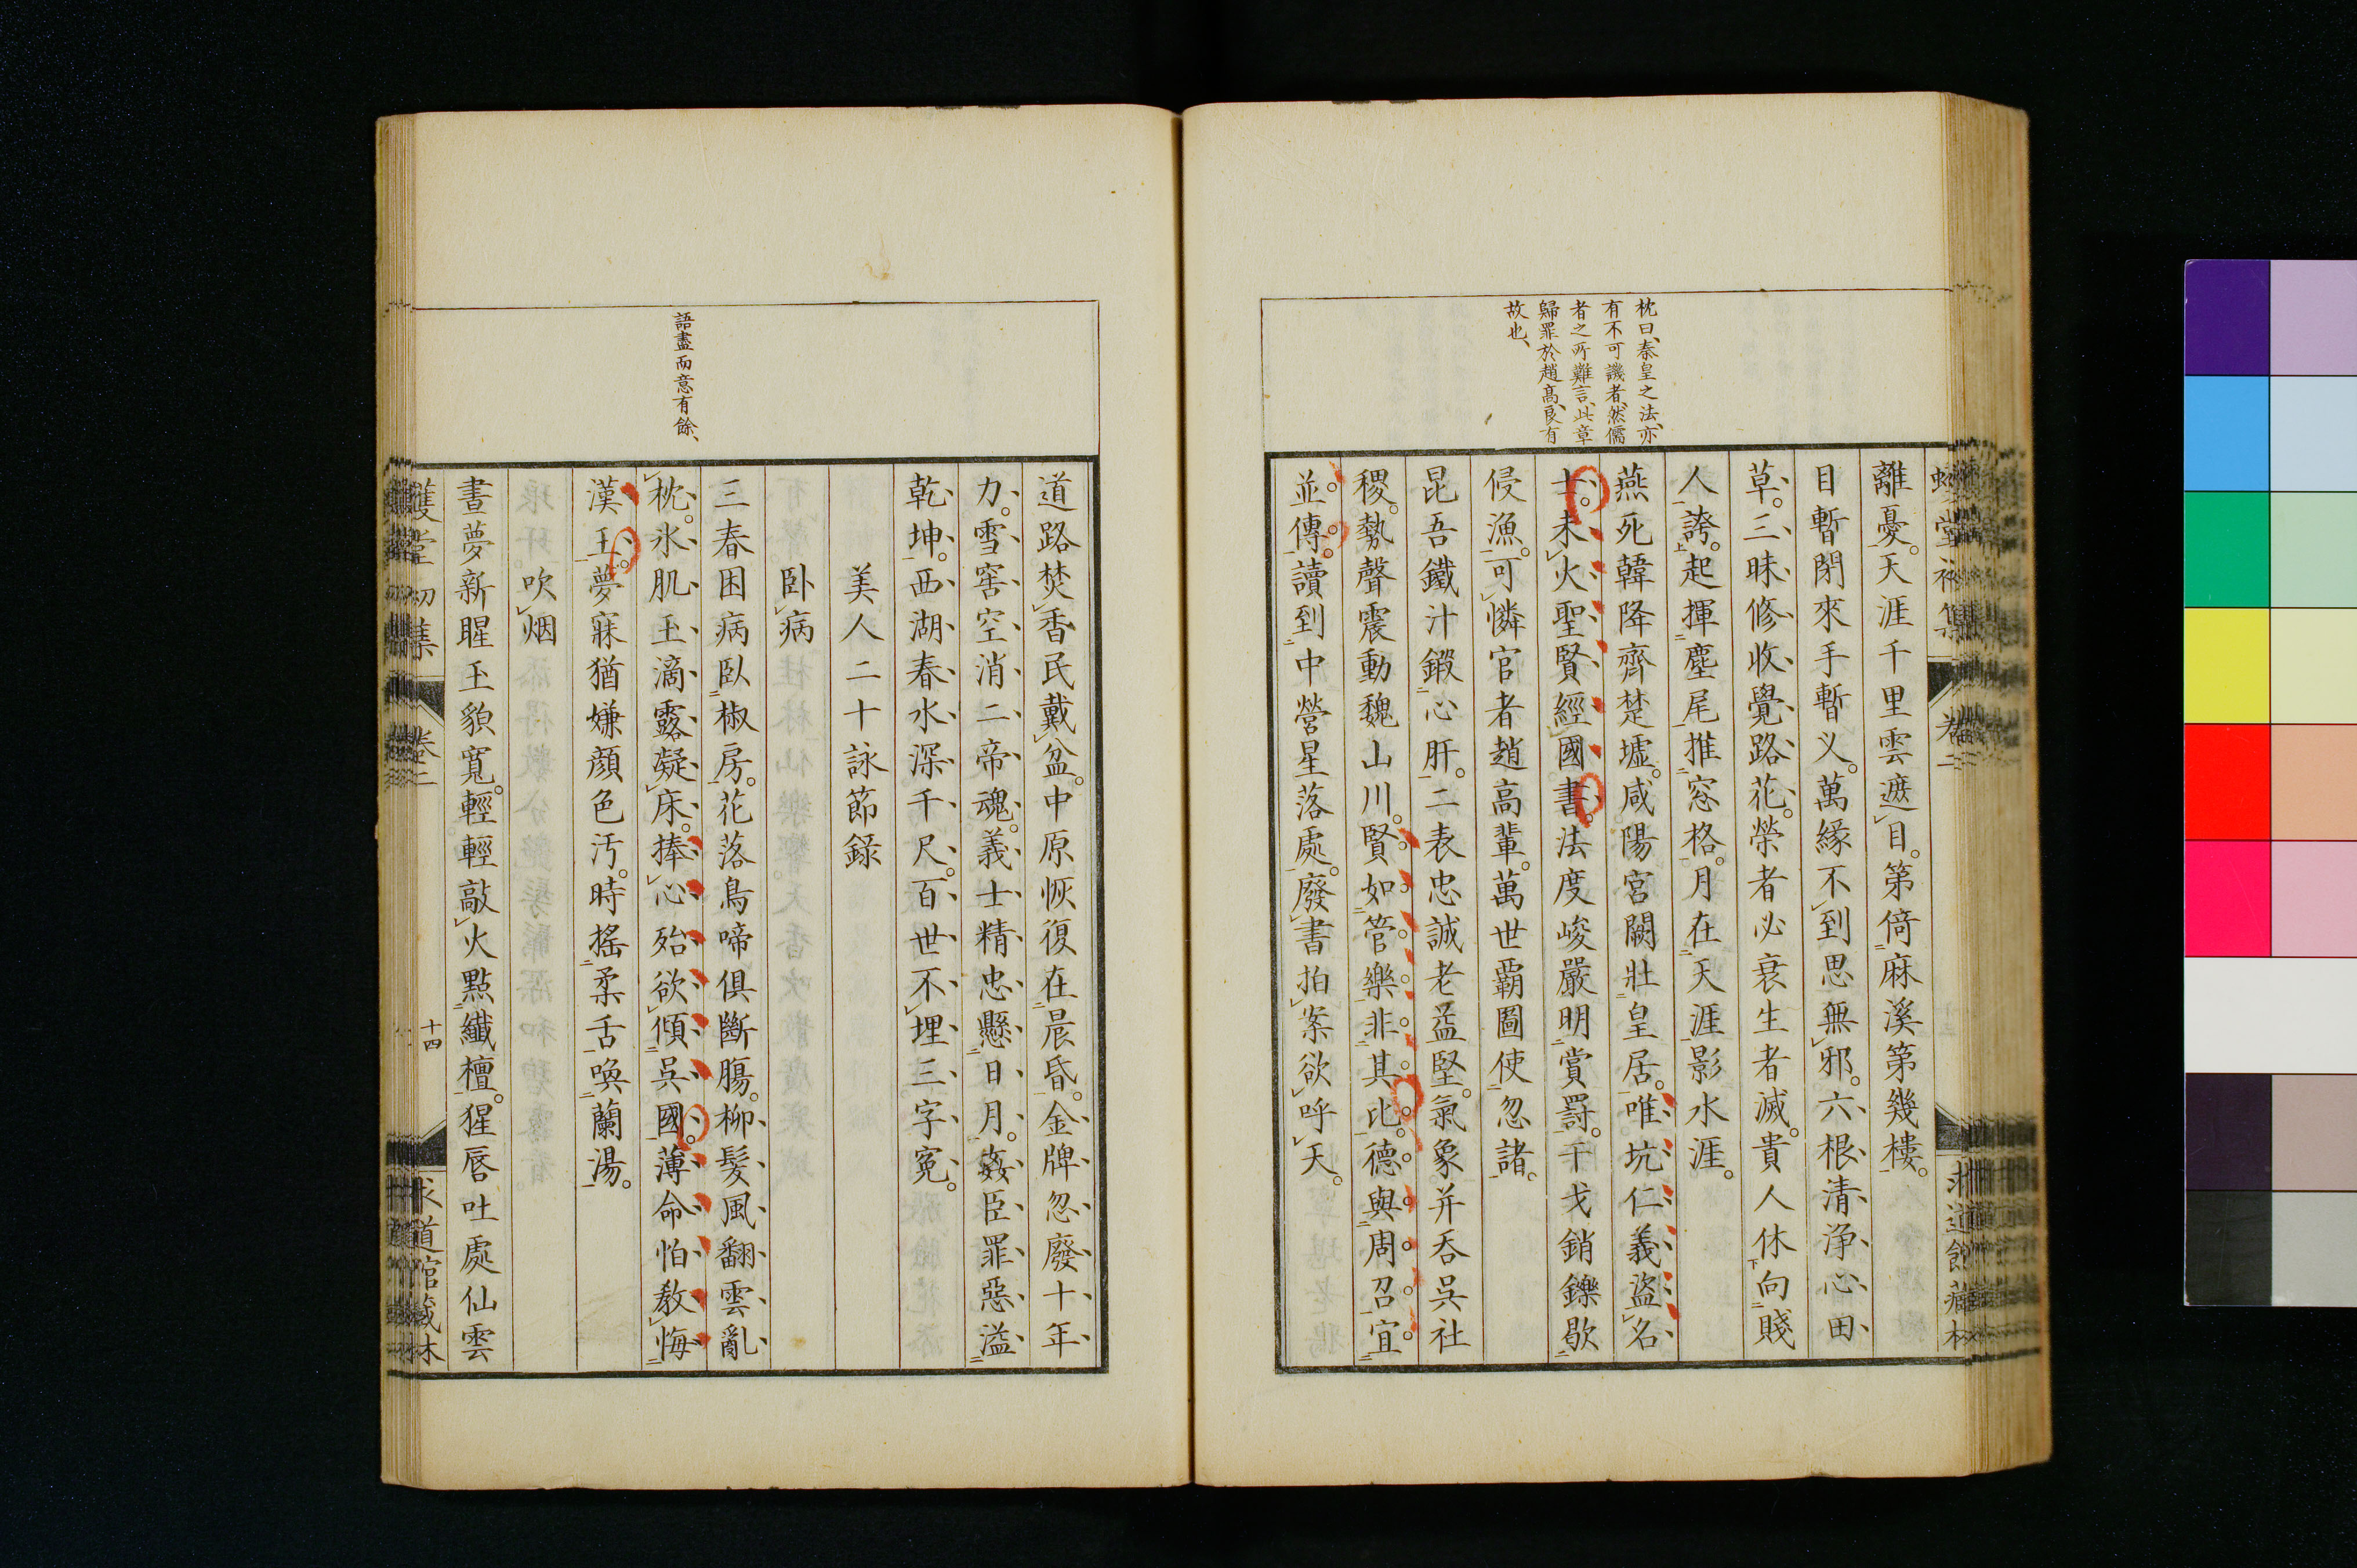 枕曰、秦皇之法、亦
有不可譏者、然儒
者之所難言、此章
歸罪於趙高、良有
故也、
離憂。天涯千里雲遮目。第倚麻溪第幾樓。
目暫閉來手暫乂。萬緣不到思無邪。六根清浄心田
草。三昧修收覺路花。榮者必衰生者滅。貴人休向賤
人誇。起揮塵尾推窓格。月在天涯影水涯。
燕死韓降齊楚墟。咸陽宮闕壯皇居。唯坑仁義盜名
士。未火聖賢經國書。法度峻嚴明賞罸。干戈銷鑠歇
侵漁。可憐官者趙高輩。萬世覇圖使忽諸。
昆吾鐵汁鍛心肝。二表忠誠老益堅。氣象并吞吳社
稷。勢聲震動魏山川。賢如管樂非其比。德與周召宜
並傳。讀到中營星落處。廢書拍案欲呼天。
語盡而意有餘、
道路焚香民戴盆。中原恢復在晨昏。金牌忽廢十年
力。雪窖空消二帝魂。義士精忠懸日月。姦臣罪惡溢
乾坤。西湖春水深千尺。百世不埋三字冤。
美人二十詠節錄
卧病
三春困病臥椒房。花落鳥啼俱斷腸。柳髮風翻雲亂
枕。氷肌玉滴露凝床。捧心殆欲傾吳國。薄命怕教悔
漢王。夢寐猶嫌顔色汚。時搖柔舌喚蘭湯。
吹烟
晝夢新腥玉貌寬。輕輕敲火點纖檀。猩唇吐處仙雲
卷二
十四
求道館藏梓